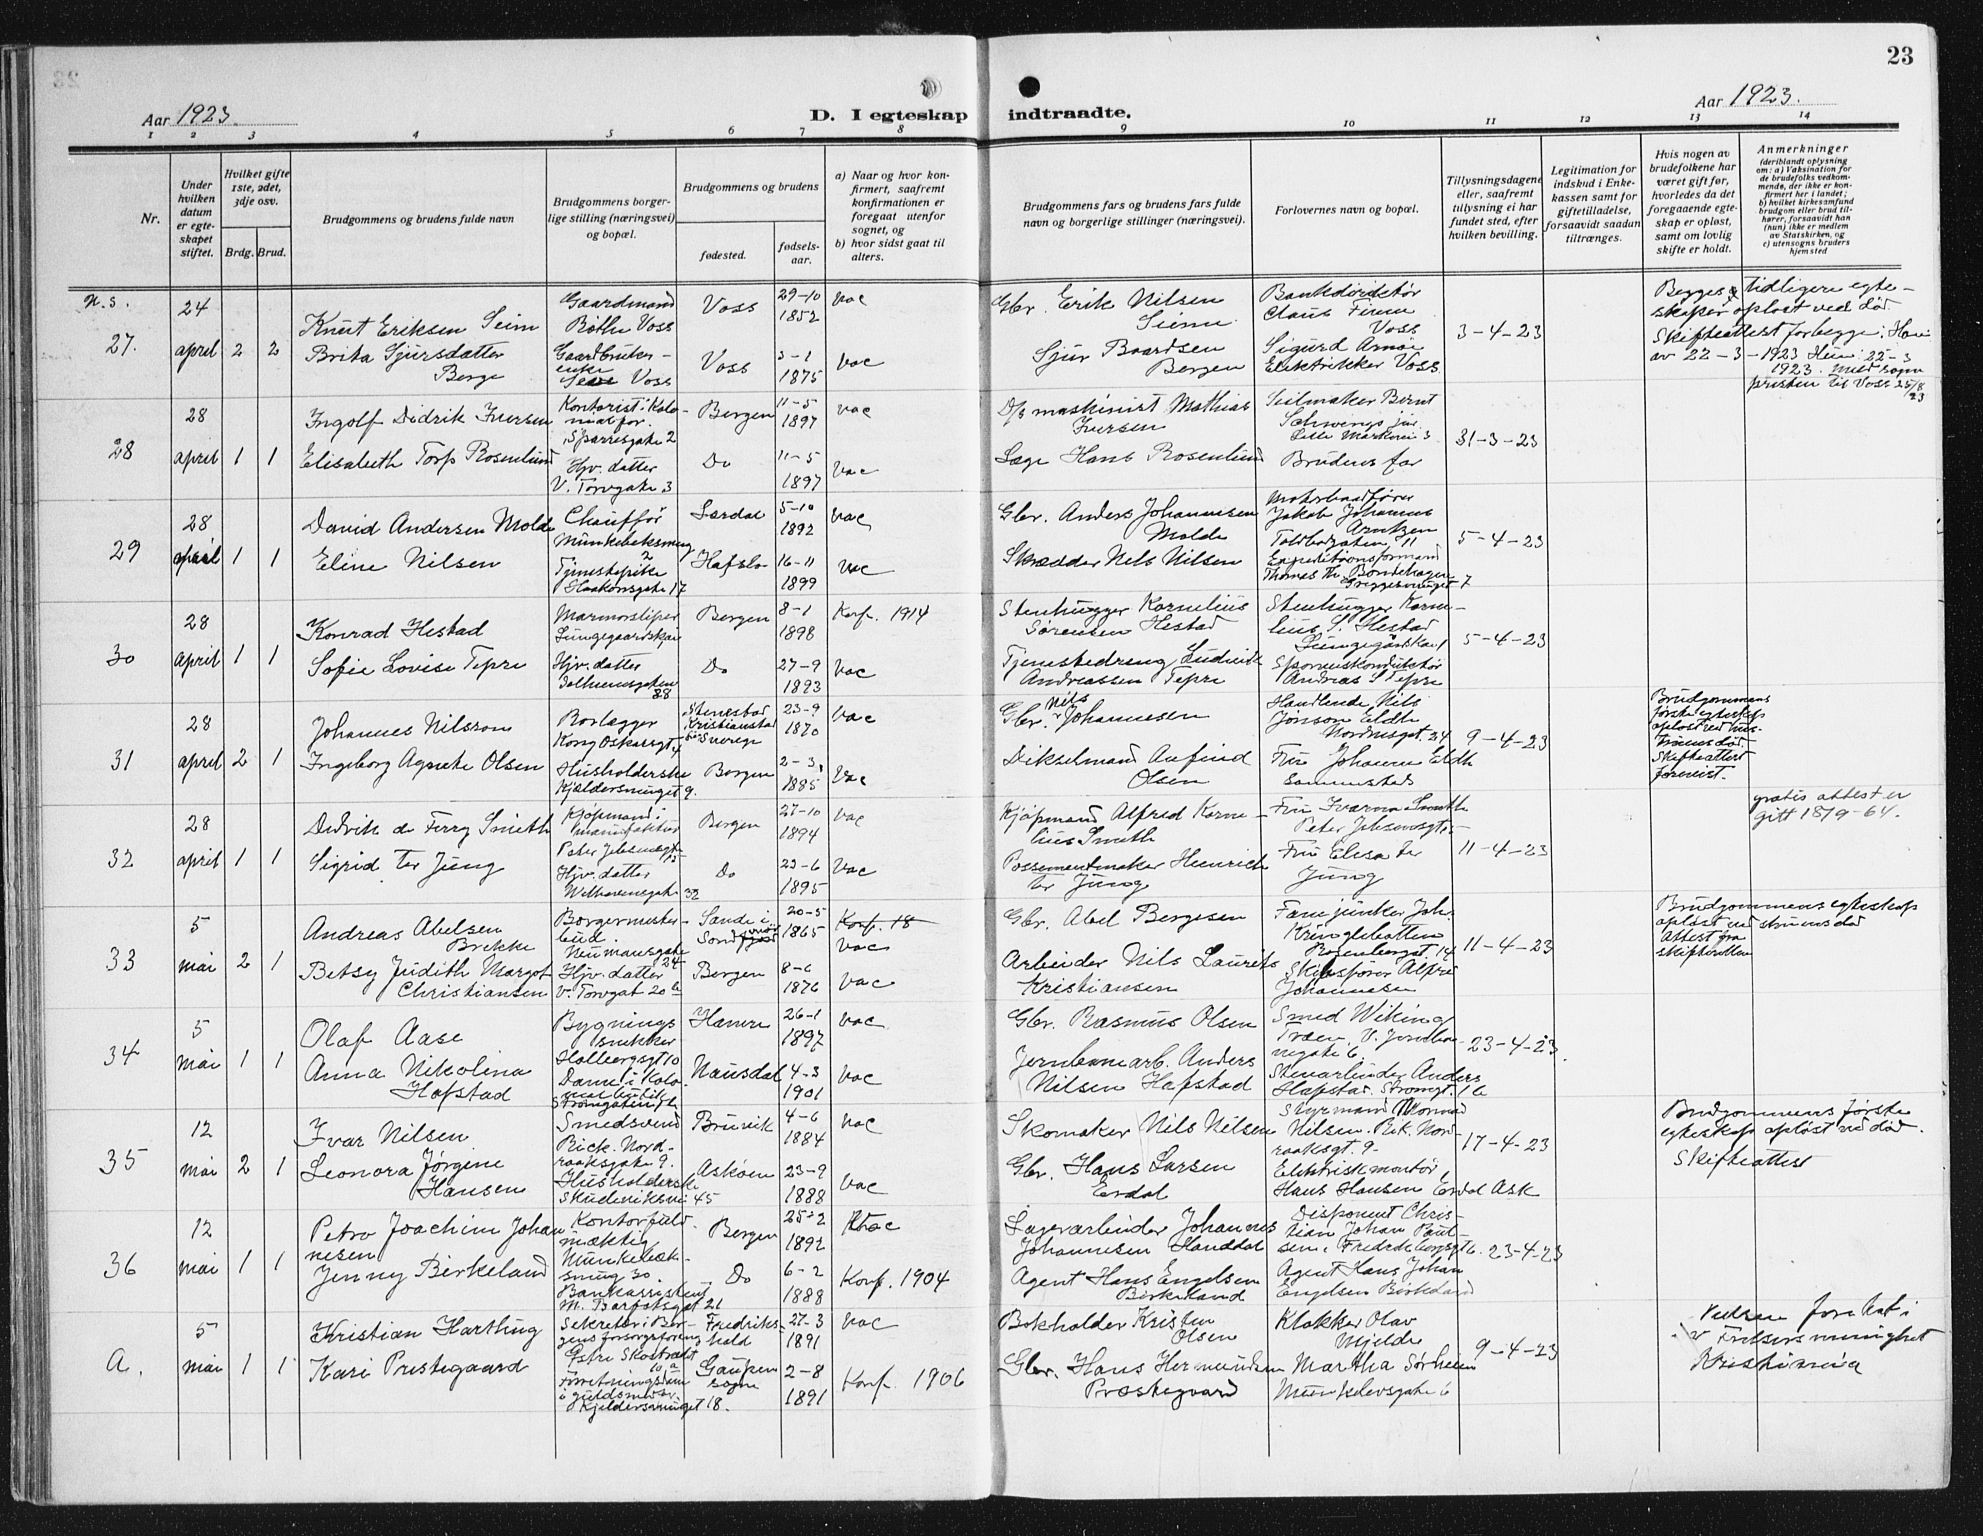 23
Aar 1923.
D. I egteskap indtraadte.
Aar 1923.
1 2 3 4 5 6 7 8 9 10 11 12 13 14
Nr.
Under hvilken datum er egteskapet stiftet.
Hvilket gifte 1ste, 2det, 3dje osv.
Brdg. Brud.
Brudgommens og brudens fulde navn
Brudgommens borgerlige stilling (næringsvei) og bopæl.
Brudgommens og brudens
fødested.
fødselsaar.
a) Naar og hvor konfirmert, saafremt konfirmationen er foregaat utenfor sognet, og
b) hvor sidst gaat til alters.
Brudgommens fars og brudens fars fulde navn og borgerlige stillinger (næringsvei).
Forlovernes navn og bopæl.
Tillysningsdagene eller, saafremt tillysning ei har fundet sted, efter hvilken bevilling.
Legitimation for indskud i Enkekassen samt for giftetilladelse, forsaavidt saadan tiltrænges.
Hvis nogen av brudefolkene har været gift før, hvorledes da det foregaaende egteskap er opløst, samt om lovlig skifte er holdt.
Anmerkninger
(deriblandt oplysning om: a) Vaksination for de brudefolks vedkommende, der ikke er konfirmert her i landet; b) hvilket kirkesamfund brudgom eller brud tilhører, forsaavidt han (hun) ikke er medlem av Statskirken, og c) utensogns bruders hjemsted
N.s.
27. 24 april 2 2
Knut Eriksen Seim
Gaardmand
Bøthu Voss
Voss
29-10
1852
vac
Gbr. Erik Nilsen
Seim
Bankdirektør
Claus Finne
Voss
3-4-23
Begges tidligere egteskaper opløst ved død.
Skifteattest for begge: Han
av 22-3-1923 Hun: 22-3
1923.
Brita Sjursdatter
Berge
Gaardbrukerenke
Voss
Voss
3-1
1875
vac
Sjur Baardsen
Bergen
Sigurd
Elektrikker Voss
presten til Voss 25/8 23
28 28 april 1 1
Ingolf Didrik Iversen
Kontorist i Kolonialfor.
Sparresgate 2
Bergen
11-5
1897
vac
D/s maskinist Mathias
Iversen
Seilmaker Bernt
Schwings jür.
Lille Markvei 3
31-3-23
Elisabeth Torp Rosenlund
Hjv. datter
V. Torvgate 3
Do
11-5
1897
vac
Læge Hans Rosenlund
Brudens far
29 28 april 1 1
David Andersen Molde
Chauffør
Munkebeksmug 2
Lærdal
5-10
1892
vac
Gbr. Anders Johannesen
Molde
Motorbaadfører
Jakob Johannes
Arntzen
Toldbodgaten 11
5-4-23
Eline Nilsen
Tjenestepike
Haakonsgate 17
Hafslo
16-11
1899
vac
Skrædder Nils Nilsen
Expeditionsformand
Thomas Th. Bondehagen
7
30 28 april 1 1
Konrad Hestad
Marmorsliper
Lungegaardskai
Bergen
8-1
1898
Konf. 1914
Stenhugger Kornelius
Sørensen Hestad
Stenhugger Kornelius S. Hestad
Lungegårdskai 1
5-4-23
Sofie Lovise Tepre
Hjv. datter
88
Do
27-9
1893
vac
Tjenestedreng Ludvik
Andreassen Tepre
Sporveiskonduktør
Andreas S Tepre
31 28 april 2 1
Johannes Nilsson
Rørlægger
Kong Oskarsgt
Kristianstad
Sverige
23-9
1870
vac
Gbr. Nils Johannesen
Handlende Nils
Jønson Eldh
Nordnesgt. 24
9-4-23
Brudgommens
første egteskap
opløst ved hustruens død.
Skifteattest
forevist.
Ingeborg Agnete Olsen
Husholderske
Kjældersmuget 9.
Bergen
2-3
1885
vac
Dikselmand Anfind
Olsen
Fru Johanne Eldh
sammesteds
32 28 april 1 1
Didrik de Ferry Smith
Kjøpmand i
manufaktur
Bergen
27-10
1894
vac
Kjøpmand Alfred Kornelius Smith
Smith
Peter Jebsensgt.
11-4-23
gratis attest er
gitt 18/9-64.
Sigrid ter Jung
Hjv. datter
Welhavensgate 32
Do
23-6
1895
vac
Possementmaker Heinrich
ter Jung
Fru Elisa ter
Jung
33 5 mai 2 1
Andreas Abelsen
Brekke
Borgermesterbud.
Neumannsgate 24
Sande i
Søndfjord
20-5
1865
Konf. 18
vac
Gbr. Abel Bergesen
Fanejunker Joh.
Kringlebotten
Rosenbergst. 14
11-4-23
Brudgommens egteskap
opløst ved hustruens død
Attest fra
skifteretten
Betsy Judith Margot
Christiansen
Hjv. datter
V. Torvgat 20
Bergen
8-6
1876
vac
Arbeider Nils Laurits
Kristiansen
Skibsfører Alfred
Johannesen
34 5 mai 1 1
Olaf Aase
Bygningssnekker
Holbergsgt 10
26-1
1897
vac
Gbr. Rasmus Olsen
Smed Wiking
23-4-23.
Anna Nikolina
Hafstad
Dame i Kolonialbutik
Strømgaten 16
Naustdal
4-3
1901
vac
Jernbanearb. Anders
Nilsen Hafstad
Stenarbeider Anders
Hafstad. Strømgt. 16
35 12 mai 2 1
Ivar Nilsen
Smedsvend
Rick. Nordraaksgate 9.
Bruvik
4-6
1884
vac
Skomaker Nils Nilsen
Styrmand Monrad
Nilsen. Rik. Nordraaksgt. 9-
17-4-23
Brudgommens første
egteskap opløst ved død.
Skifteattest
Leonora Jørgine
Hansen
Husholderske
Skudeviksvei 45
Askøen
23-9
1888
vac
Gbr. Hans Larsen
Erdal
Elektriskmontør
Hans Hansen Erdal Ask
36 12 mai 1 1
Petro Joachim Johannesen
Kontorfuldmæktig
Munkebæksmug 30.
Bergen
25-2
1892
vac
Lagerarbeider Johannes
Johannesen Handdal
Disponent Christian Johan Poulsen, Fredriksbergsgt 6.
23-4-23
Jenny Birkeland
Bankassistent
M. Barfotsgat 21
Do
6-2
1888
Konf. 1904
Agent Hans Engelsen
Birkeland
Agent Hans Johan
Engelsen Birkeland
A. 5 mai 1 1
Kristian Harthug
Sekretær i Bergens forsorgsforening
Østre Skostrædet 10 a
Fredrikshald
27-3
1891
vac
Bokholder Kristen
Olsen
Klokker Olav
Mjelde
9-4-23
Vielsen foretat i
Frelsers menighet
Kristiania
Kari Prestegaard
Forretningsdame
i guldsmedf.
Kjeldersmuget 18.
Gaupen
sogn
2-8
1891
Konf. 1906
Gbr. Hans Hermundsen
Præstegaard
Martha Sørheim
6